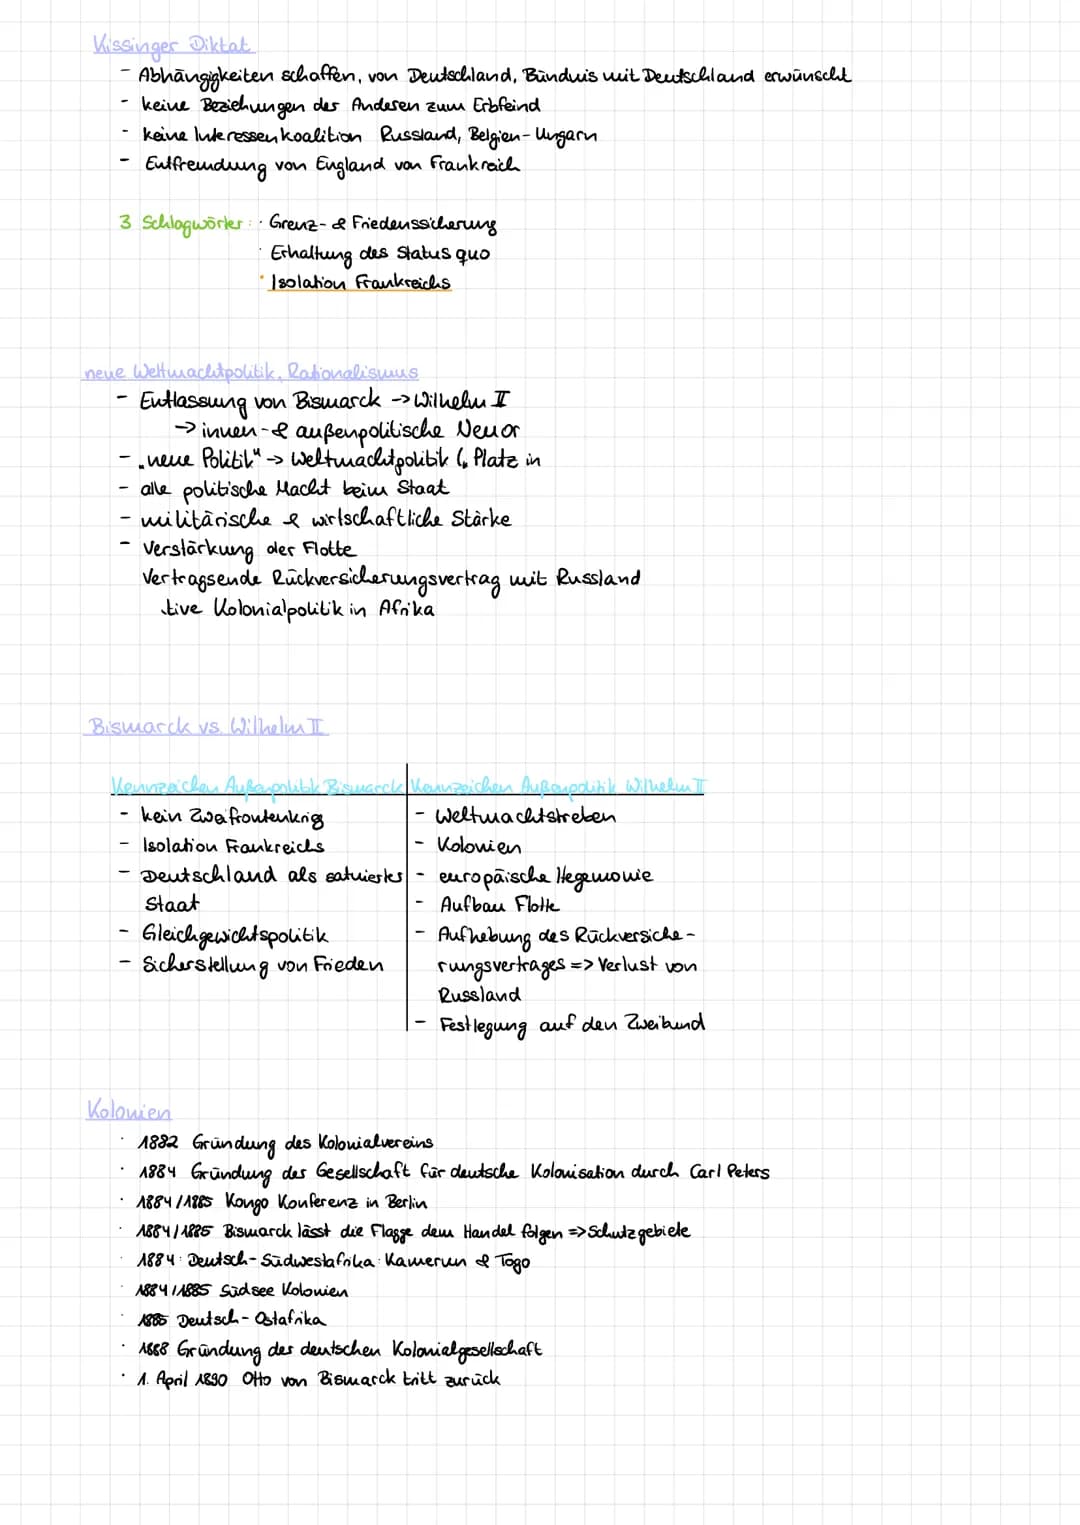 Kissinger Diktat
- Abhängigkeiten schaffen, von Deutschland, Bündnis mit Deutschland erwünscht
- keine Beziehungen der Anderen zum Erbfeind
- keine Interessenkoalition Russland, Belgien-Ungarn
- Entfremdung von England von Frankreich
3 Schlagwörter: · Grenz- & Friedenssicherung
· Erhaltung des Status quo
· Isolation Frankreichs
neue Weltmachtpolitik, Rationalismus
- Entlassung von Bismarck -> Wilhelm II
-> innen- & außenpolitische Neuor
- „neue Politik" -> Weltmachtpolitik (, Platz in
- alle politische Macht beim Staat
- militärische & wirtschaftliche Stärke
- Verstärkung der Flotte
Vertragsende Rückversicherungsvertrag mit Russland
tive Kolonialpolitik in Afrika
Bismarck vs. Wilhelm II
Kennzeichen Außenpolitik Bismarck | Kennzeichen Außenpolitik Wilhelm II
- kein Zweifrontenkrig - Weltmachtstreben
- Isolation Frankreichs - Kolonien
- Deutschland als satuiertes - europäische Hegemonie
Staat - Aufbau Flotte
- Gleichgewichtspolitik - Aufhebung des Rückversiche-
- Sicherstellung von Frieden rungsvertrages => Verlust von
Russland
- Festlegung auf den Zweibund
Kolonien
· 1882 Gründung des Kolonialvereins
· 1884 Gründung der Gesellschaft für deutsche Kolonisation durch Carl Peters
· 1884/1885 Kongo Konferenz in Berlin
· 1884/1885 Bismarck lässt die Flagge dem Handel folgen => Schutzgebiete
· 1884: Deutsch-Südwestafrika: Kamerun & Togo
· 1884/1885 Südsee Kolonien
· 1885 Deutsch-Ostafrika
· 1888 Gründung der deutschen Kolonialgesellschaft
· 1. April 1890 Otto von Bismarck tritt zurück